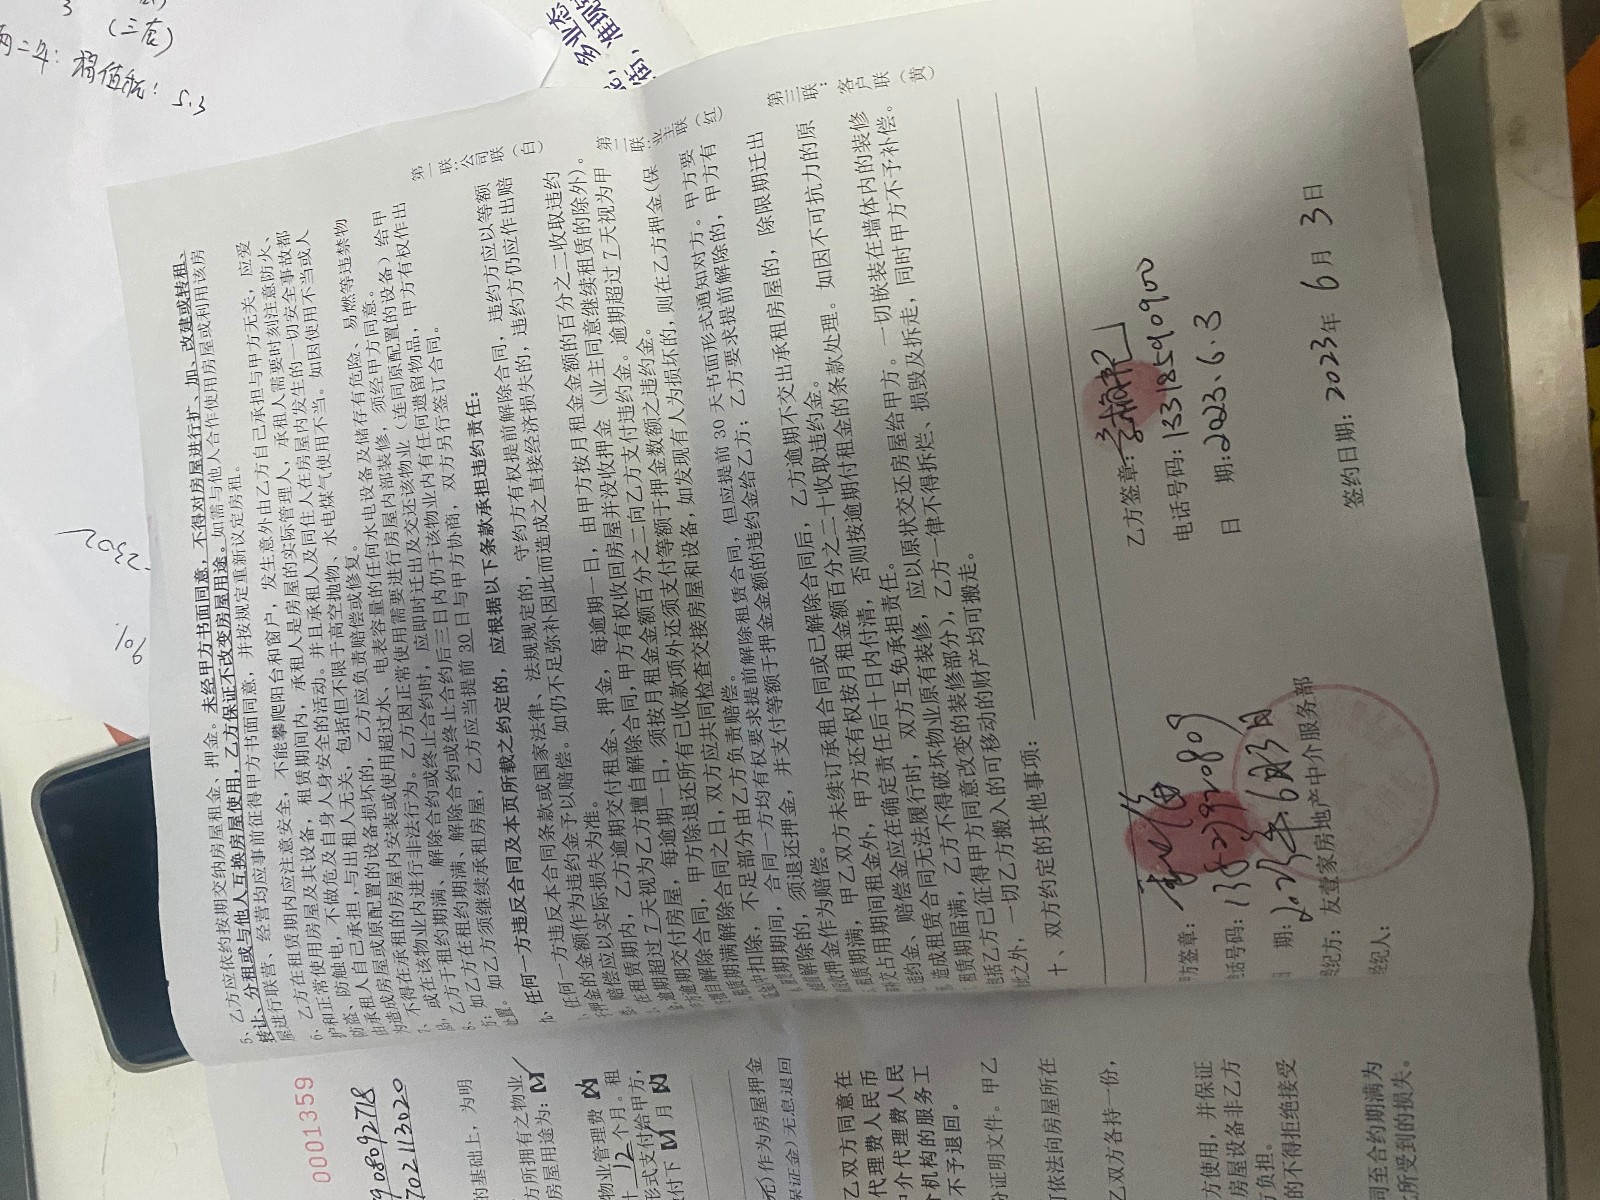 5、乙方应依约按期交纳房屋租金、押金。未经甲方书面同意，不得对房屋进行扩、加、改建或转租、
转让、分租或与他人互换房屋使用，乙方保证不改变房屋用途。如需与他人合作使用房屋或利用该房
屋进行联营、经营均应事前征得甲方书面同意，并按规定重新议定房租。
6、乙方在租赁期内应注意安全，不能攀爬阳台和窗户，发生意外由乙方自己承担与甲方无关，应爱
护和正常使用房屋及其设备，租赁期间内，承租人是房屋的实际管理人，承租人需要时刻注意防火、
防盗、防触电，不做危及自身人身安全的活动。并且承租人及同住人在房屋内发生的一切安全事故都
由承租人自己承担，与出租人无关，包括但不限于高空抛物、水电煤气使用不当。如因使用不当或人
为造成房屋或原配置的设备损坏的，乙方应负责赔偿或修复。
不得在承租的房屋内安装或使用超过水、电表容量的任何水电设备及储存有危险、易燃等违禁物
或在该物业内进行非法行为。乙方因正常使用需要进行房屋内部装修，须经甲方同意。
乙方于租约期满、解除合约或终止合约时，应即时迁出及交还该物业（连同原配置的设备）给甲
如乙方在租约期满、解除合约或终止合约后三日内仍于该物业内有任何遗留物品，甲方有权作出
处置。如乙方须继续承租房屋，乙方应当提前 30 日与甲方协商，双方另行签订合同。
任何一方违反合同及本页所载之约定的，应根据以下条款承担违约责任：
任何一方违反本合同条款或国家法律、法规规定的，守约方有权提前解除合同，违约方应以等额
押金的金额作为违约金予以赔偿。如仍不足弥补因此而造成之直接经济损失的，违约方仍应作出赔
赔偿应以实际损失为准。
在租赁期内，乙方逾期交付租金、押金，每逾期一日，由甲方按月租金金额的百分之二收取违约
逾期超过 7 天视为乙方擅自解除合同，甲方有权收回房屋并没收押金（业主同意继续租赁的除外）。
逾期交付房屋，每逾期一日，须按月租金金额百分之二向乙方支付违约金。逾期超过 7 天视为甲
擅自解除合同，甲方除退还所有已收款项外还须支付等额于押金数额之违约金。
租赁期满解除合同之日，双方应共同检查交接房屋和设备，如发现有人为损坏的，则在乙方押金（保
中扣除，不足部分由乙方负责赔偿。
租赁期间，合同一方均有权要求提前解除租赁合同，但应提前 30 天书面形式通知对方。甲方要
解除的，须退还押金，并支付等额于押金金额的违约金给乙方；乙方要求提前解除的，甲方有
押金作为赔偿。
租赁期满，甲乙双方未续订承租合同或已解除合同后，乙方逾期不交出承租房屋的，除限期迁出
占用期间租金外，甲方还有权按月租金金额百分之二十收取违约金。
违约金、赔偿金应在确定责任后十日内付清，否则按逾期付租金的条款处理。如因不可抗力的原
造成租赁合同无法履行时，双方互免承担责任。
租赁期届满，乙方不得破坏物业原有装修，应以原状交还房屋给甲方。一切嵌装在墙体内的装修
包括乙方已征得甲方同意改变的装修部分），乙方一律不得拆烂、损毁及拆走，同时甲方不予补偿。
此之外，一切乙方搬入的可移动的财产均可搬走。
十、双方约定的其他事项：
第一联：公司联（白）
第二联：业主联（红）
第三联：客户联（黄）
方签章：
话号码：
期：2023年6月3日
经纪方：友壹家房地产中介服务部
经纪人：
乙方签章：
电话号码：13318590900
日 期：2023.6.3
签约日期：2023年 6月 3日
0001359
908092718
702113020
的基础上，为明
方所拥有之物业
房屋用途为：
物业管理费
12 个月。租
形式支付给甲方，
付下 月
元）作为房屋押金
保证金）无息退回
乙双方同意在
代理费人民币
介代理费人民
介机构的服务工
不予退回。
分证明文件。甲乙
可依法向房屋所在
乙双方各持一份，
方使用，并保证
房屋设备非乙方
负担。
的不得拒绝接受
同至合约期满为
所受到的损失。
5.3
2302
90%